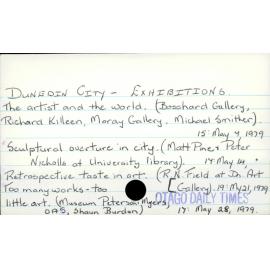 DUNEDIN CITY - EXHIBITIONS.
The artist and the world. (Bosshard Gallery,
Richard Killeen, Moray Gallery, Michael Smither).
15 May 7, 1979.
Sculptural overture in city. (Matt Pine & Peter
Nicholls at University library). 17 May 14,
Retrospective taste in art. (R.N. Field at D. Art
Gallery). 19 My 21, 1979
Too many works - too
little art. (Museum Peterson Myers
DAS, Shaun Burdon) 17. May 28, 1979.
OTAGO DAILY TIMES